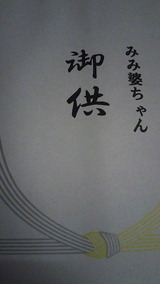 みみ婆ちゃん
御供